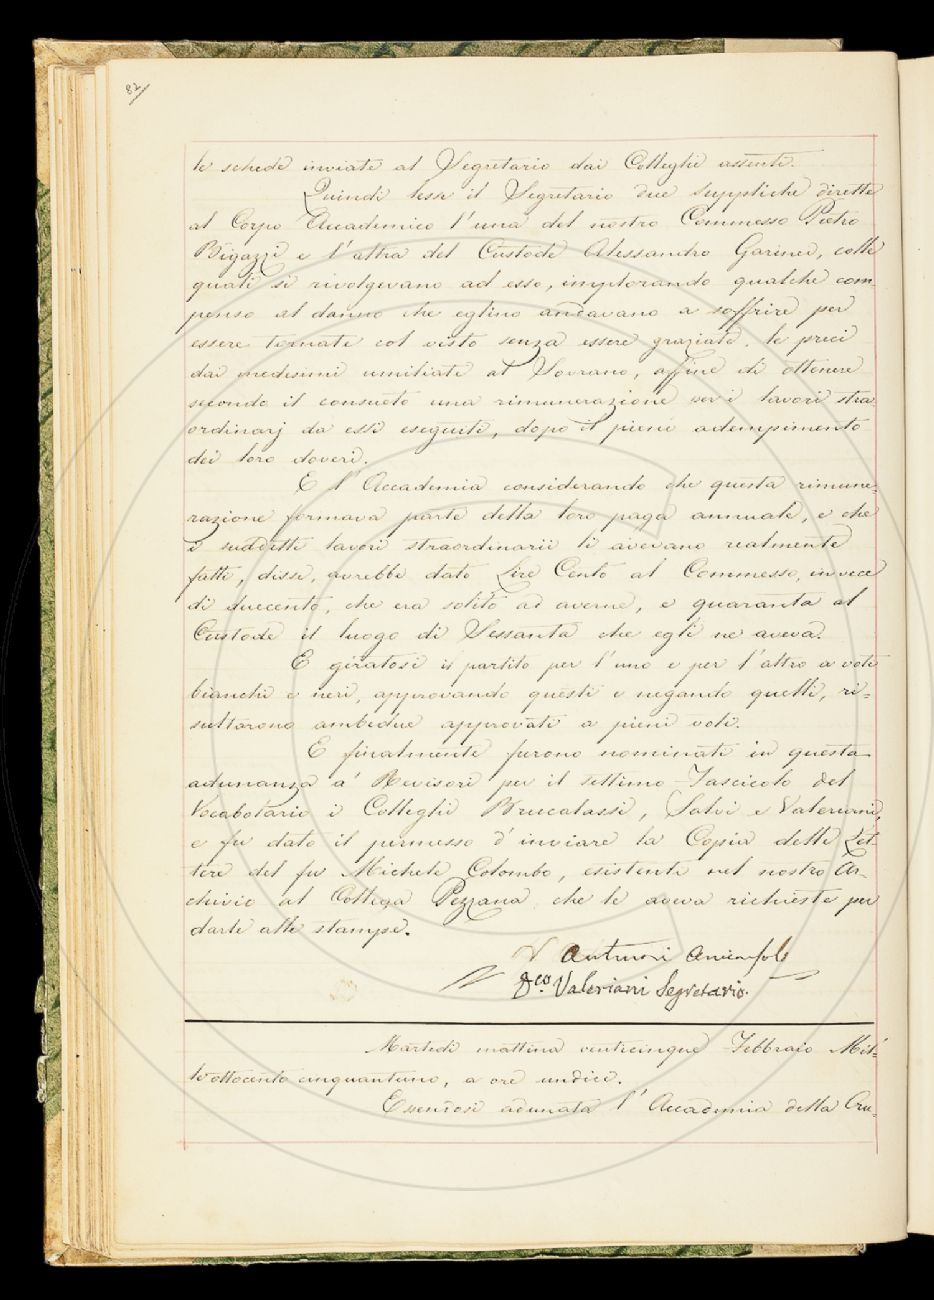 82
le schede inviate al Segretario dai Colleghi assenti.
Quindi lesse il Segretario due suppliche dirette
al Corpo Accademico l'una del nostro Commesso Pietro
Bigazzi e l'altra del Custode Alessandro Garinei, colle
quali si rivolgevano ad esso, implorando qualche com-
penso al danno che eglino andavano a soffrire per
essere tornate col visto senza essere graziate, le preci
dai medesimi umiliate al Sovrano, affine di ottenere
secondo il consueto una rimunerazione per i lavori stra-
ordinarj da essi eseguiti, dopo il pieno adempimento
dei loro doveri.
E l'Accademia considerando che questa rimune-
razione formava parte della loro paga annuale, e che
i suddetti lavori straordinarii li avevano realmente
fatti, disse, avrebbe dato Lire Cento al Commesso, invece
di duecento, che era solito ad averne, e quaranta al
Custode il luogo di Sessanta che egli ne aveva.
E giratosi il partito per l'uno e per l'altro a voti
bianchi e neri, approvando questi e negando quelli, ri=
sultarono ambidue approvati a pieni voti.
E finalmente furono nominati in questa
adunanza a' Revisori per il settimo Fascicolo del
Vocabolario i Colleghi Brucalassi, Salvi e Valeriani,
e fu dato il permesso d'inviare la Copia delle Let-
tere del fu Michele Colombo, esistenti nel nostro Ar-
chivio al Collega Pezzana, che le aveva richieste per
darle alle stampe.
V Antinori
Dco. Valeriani Segretario.
Martedì mattina venticinque Febbraio Mil-
leottocento cinquantuno, a ore undici.
Essendosi adunata l'Accademia della Cru-